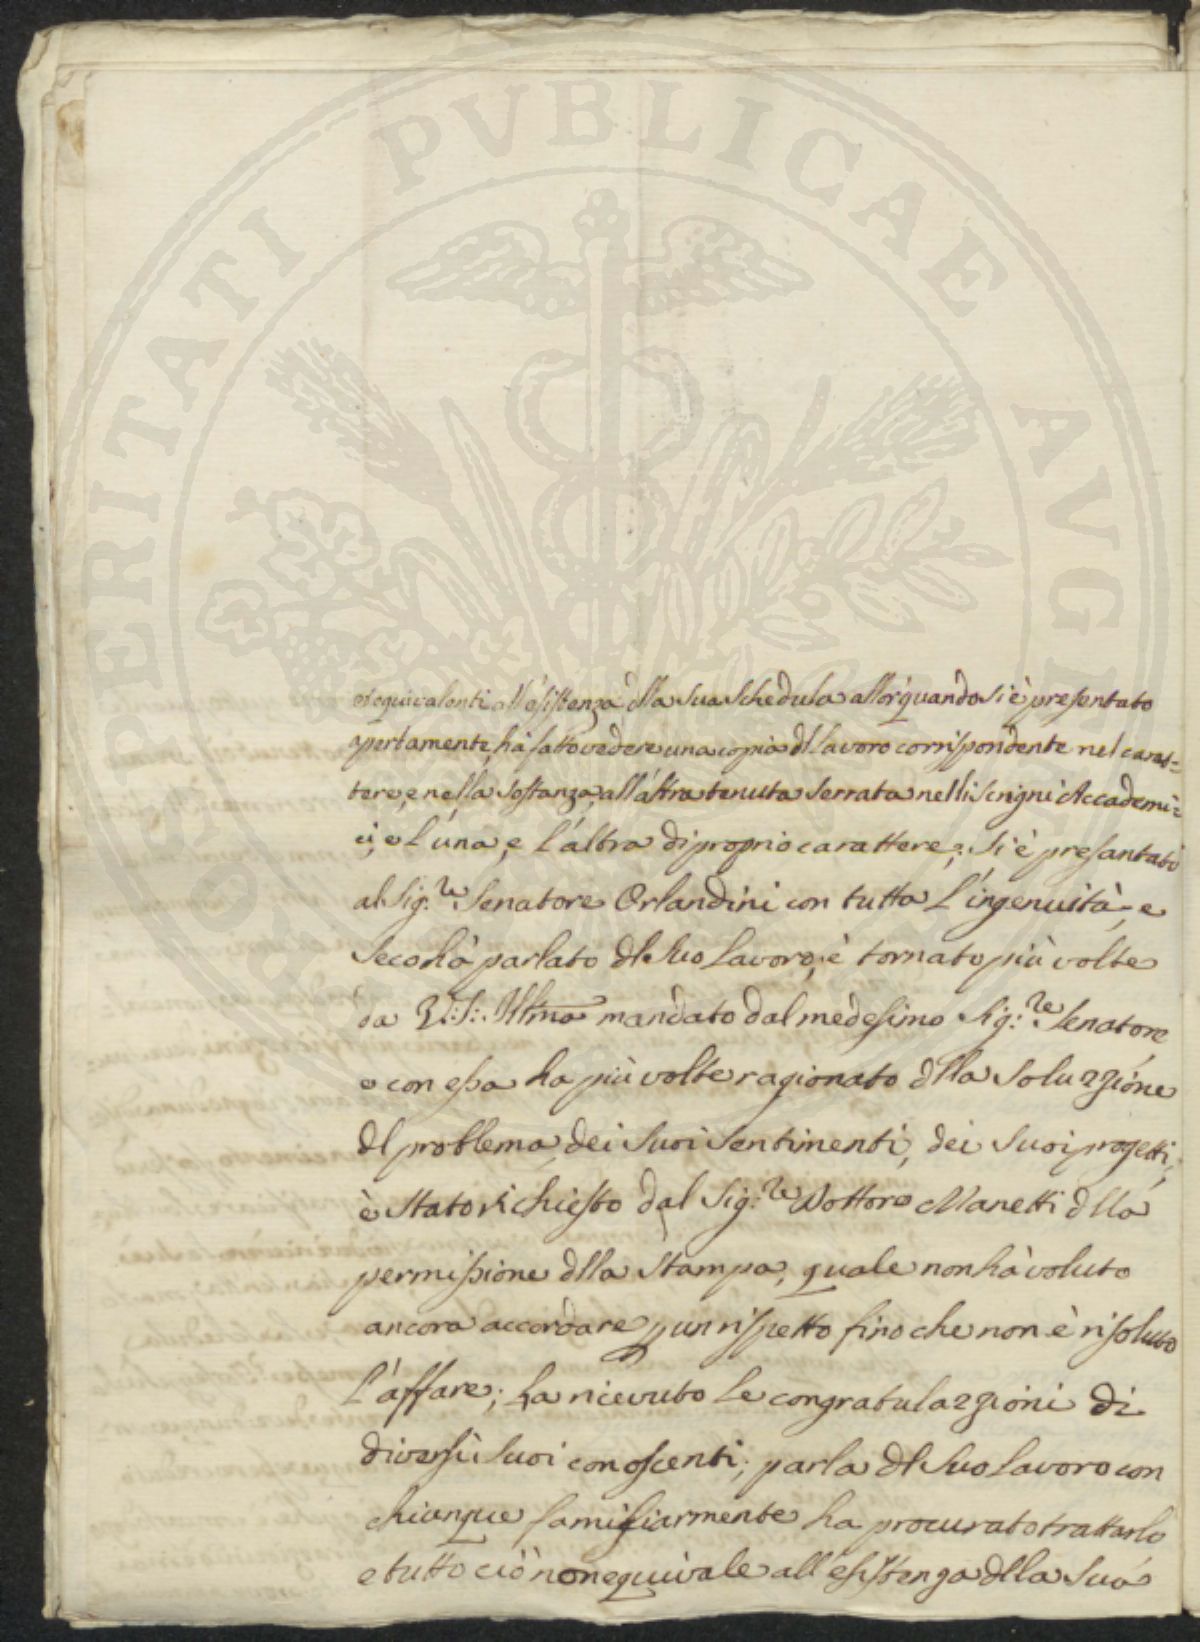 PROSPERITATI PVBLICAE AVGENDAE
ed equivalenti all'esistenza dlla sua Schedula allor quando si è presentato
apertamente, hà fatto vedere una copia dl lavoro corrispondente nel carat=
tere, e nella sostanza, all'altra tenuta serrata nelli scrigni Accademi=
ci, e l'una, e l'altra di proprio carattere; si è presantato
al Sig.re Senatore Orlandini con tutta l'ingenuità, e
seco hà parlato dl suo Lavoro; è tornato più volte
da V: S: Illma mandato dal medesimo Sig:re Senatore
e con essa ha più volte ragionato dlla soluzzione
dl problema, dei suoi sentimenti, dei suoi progetti;
è stato richiesto dal Sig:re Dottore Manetti dlla
permissione dlla stampa, quale non hà voluto
ancora accordare p un rispetto fino che non è risoluto
l'affare; ha ricevuto le congratulazzioni di
diversi suoi conoscenti; parla dl suo lavoro con
chiunque famigliarmente ha procurato trattarlo
e tutto ciò non equivale all'esistenza dlla sua